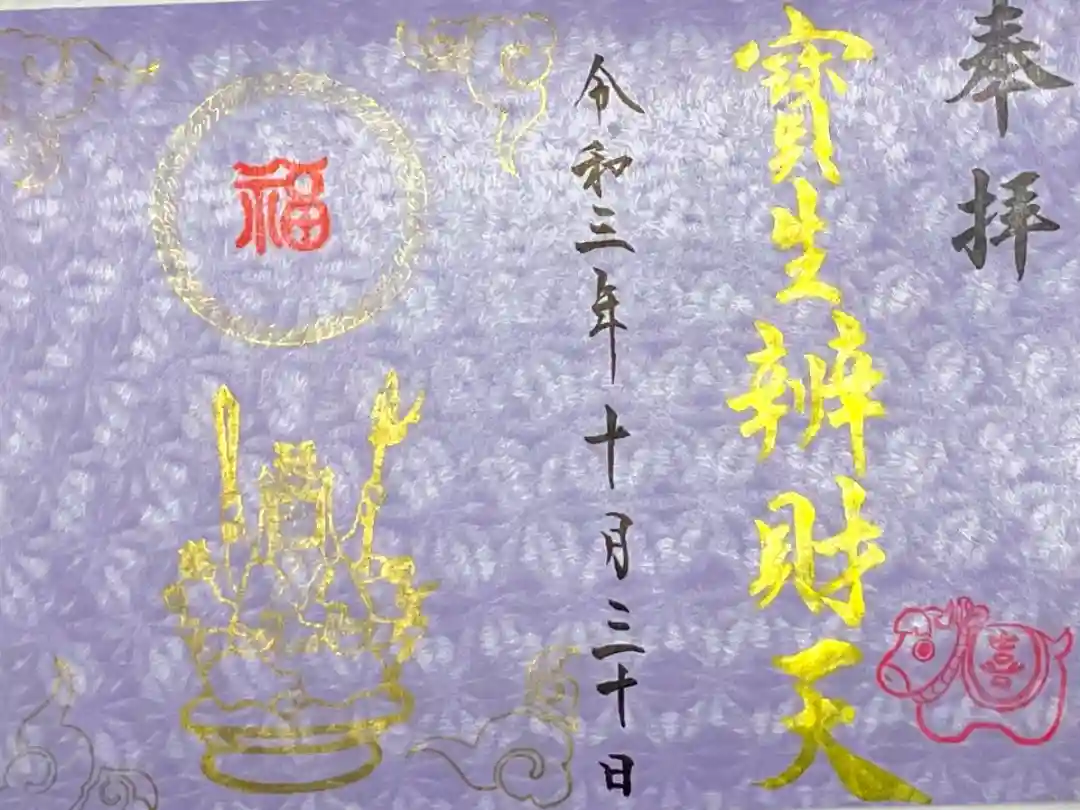 奉拝
寶生辨財天
喜
令和三年十月三十日
福